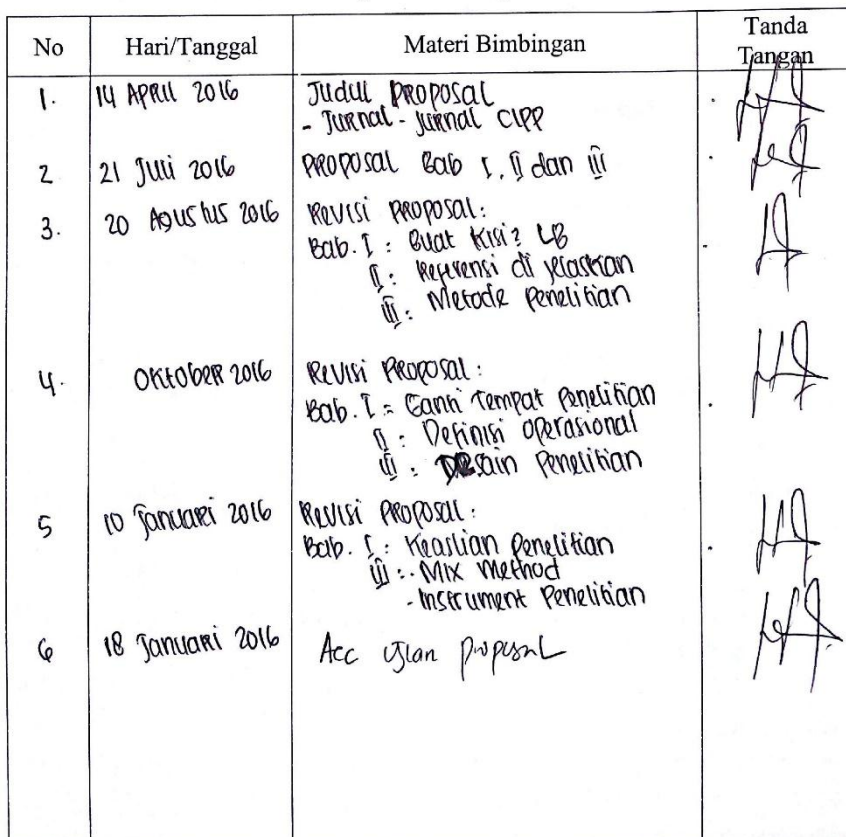 No Hari/Tanggal Materi Bimbingan Tanda Tangan
1. 14 April 2016 Judul Proposal
- Jurnal - Jurnal CIPP
2 21 Juli 2016 Proposal Bab I, II dan III
3. 20 Agustus 2016 Revisi Proposal:
Bab. I : Buat Kisi2 LB
II : Referensi di jelaskan
III : Metode Penelitian
4. Oktober 2016 Revisi Proposal:
Bab. I = Ganti Tempat Penelitian
II : Definisi Operasional
III : Desain Penelitian
5 10 Januari 2016 Revisi Proposal:
Bab. I : Keaslian Penelitian
III : - Mix Method
- Instrument Penelitian
6 18 Januari 2016 Acc Ujian Proposal